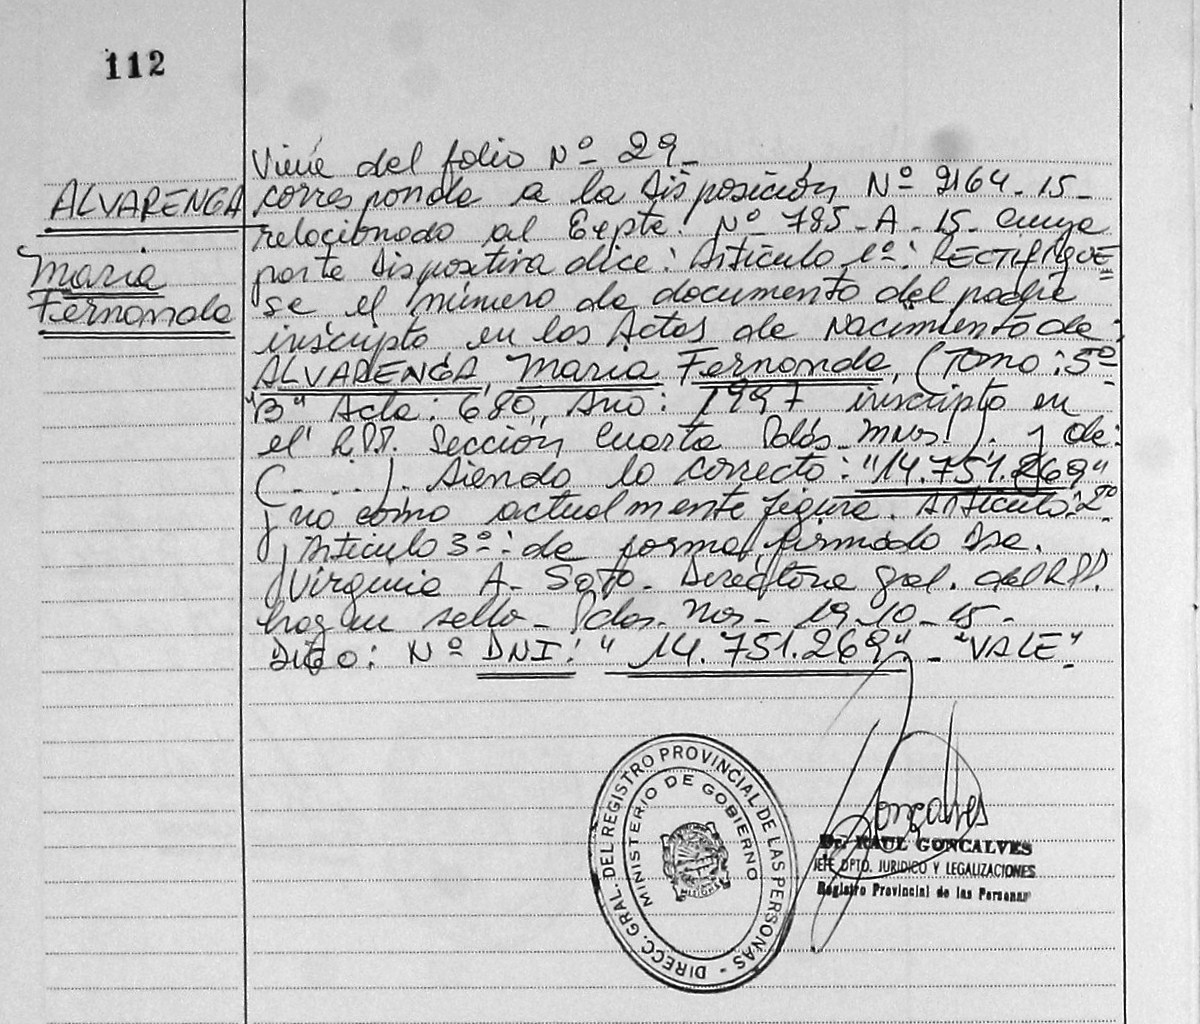 112
ALVARENGA
Maria
Fernanda
Viene del folio Nº 29-
corresponde a la Disposición Nº 2164-15-
relacionado al Expte. Nº 785-A-15- cuya
parte Dispositiva dice: Artículo 1º: RECTIFIQUE=
se el número de documento del padre
inscripto en las Actas de Nacimiento de:
ALVARENGA, Maria Fernanda, (Tomo: 5º
"B" Acta: 680, Año: 1997 inscripto en
el RPP. Sección Cuarta Pdas. Mnes.). y de:
(....). Siendo lo correcto: "14.751.269"
y no como actualmente figura. Artículo: 2º
y Artículo 3º: de forma, firmado Dra.
Virginia A- Soto- Directora Gral. del RPP.
hay un sello- Pdas. Mnes- 19-10-15-
Digo: Nº DNI: "14.751.269"- "VALE"
DIRECC. GRAL. DEL REGISTRO PROVINCIAL DE LAS PERSONAS -
MINISTERIO DE GOBIERNO
MISIONES
Gonçalves
Dr. RAUL GONCALVES
JEFE DPTO. JURIDICO Y LEGALIZACIONES
Registro Provincial de las Personas